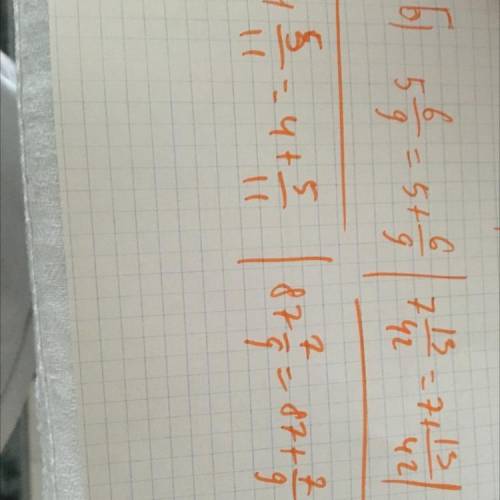 б) 5 6/9 = 5 + 6/9 | 7 15/42 = 7 + 15/42 |
5/11 = 4 + 5/11 | 87 7/9 = 87 + 7/9